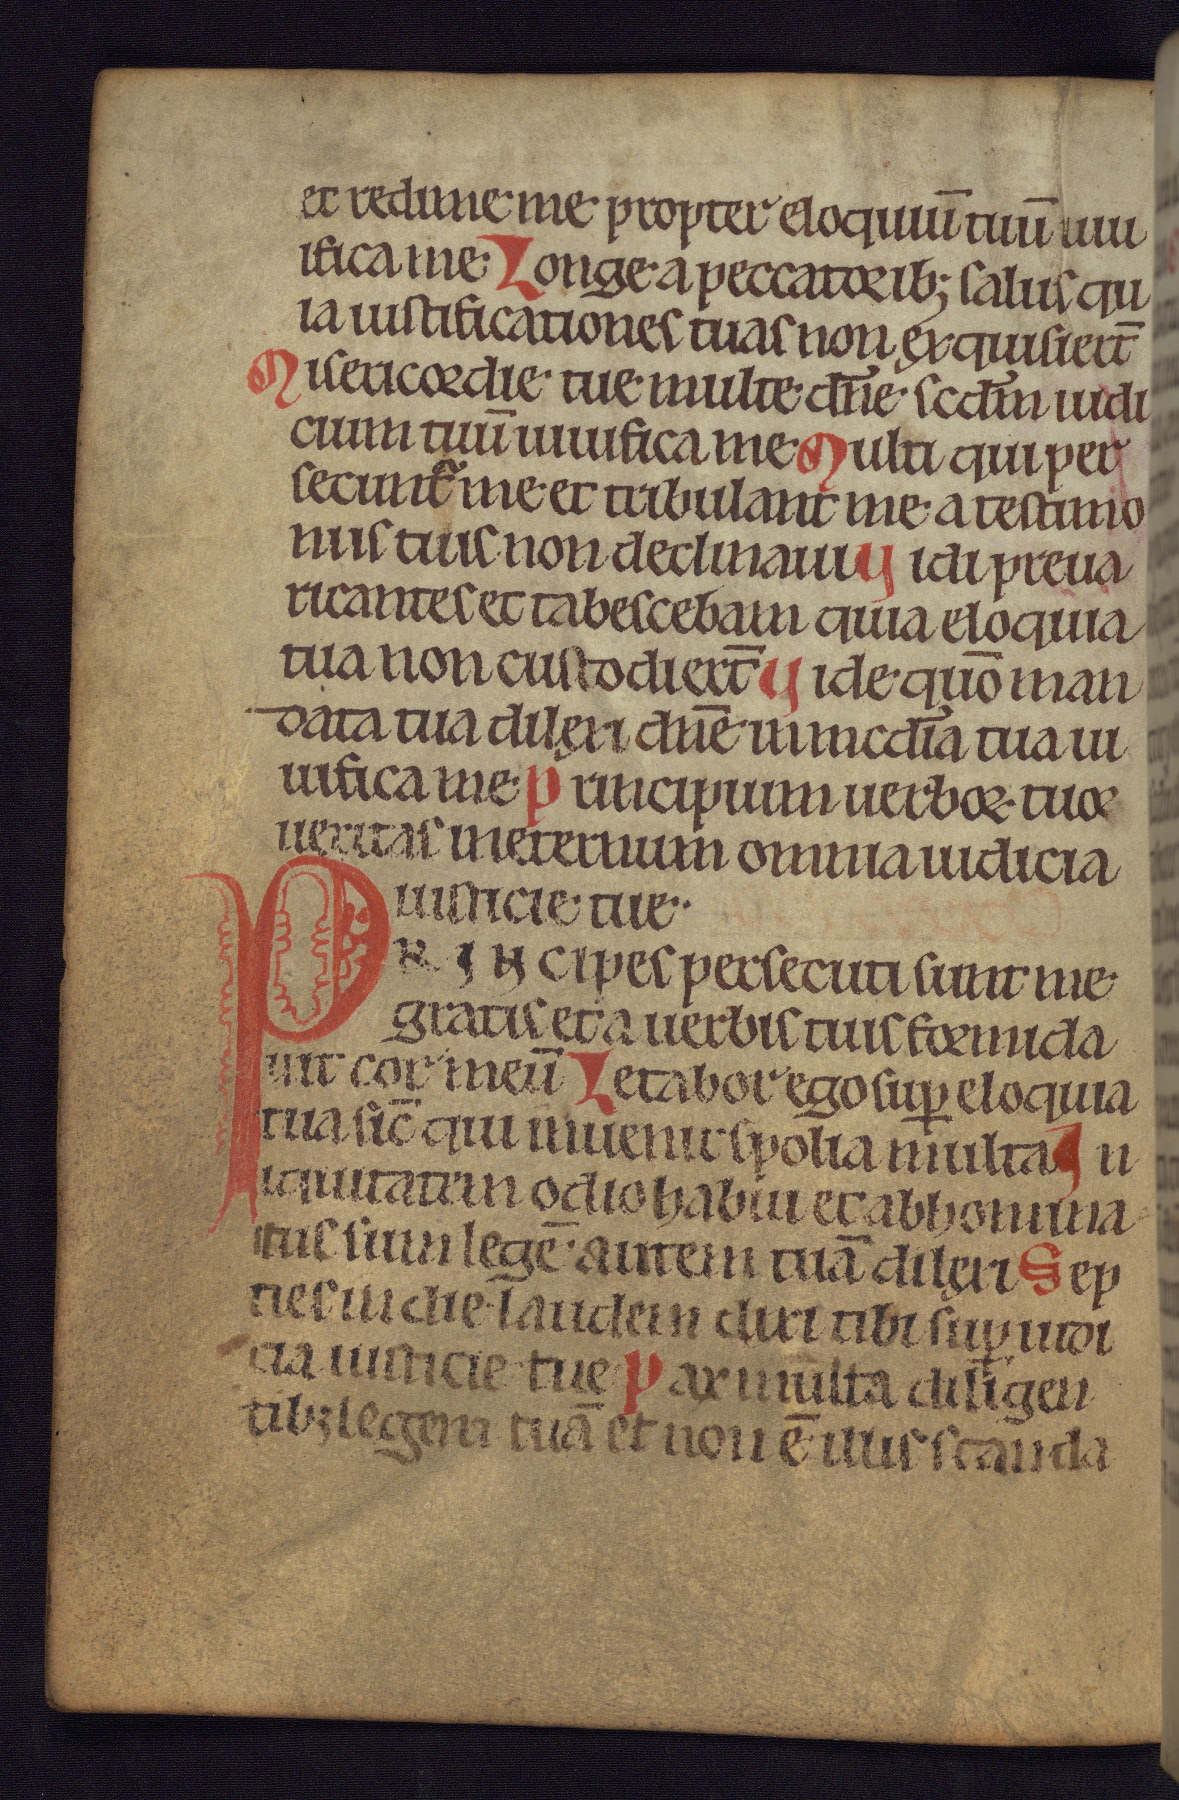 et redime me propter eloquiū tuū uiu
ifica me Longe a peccatorib; salus qu
ia iustificationes tuas non exquisiert̄
Misericordie tue multe dn̄e scdm̄ iudi
cium tuū uiuifica me Multi qui per
secunt᷑ me et tribulant me a testimo
niis tuis non declinaui Vidi preua
ricantes et tabescebam quia eloquia
tua non custodiert̄ Vide quō man
data tua dilexi dn̄e in mcd̄ia tua ui
uifica me Principium uerbor tuor
ueritas ineternum omnia iudicia
iusticie tue.
PRINCipes persecuti sunt me
gratis et a uerbis tuis formida
uit cor meū Letabor ego sup̄ eloquia
tua sic̄ qui inuenit spolia multa In
iquitatem odio habui et abhomina
tus sum legē autem tuā dilexi Sep
ties in die laudem dixi tibi sup̄ iudi
cia iusticie tue Pax multa diligen
tib; legem tuā et non ē illis scanda